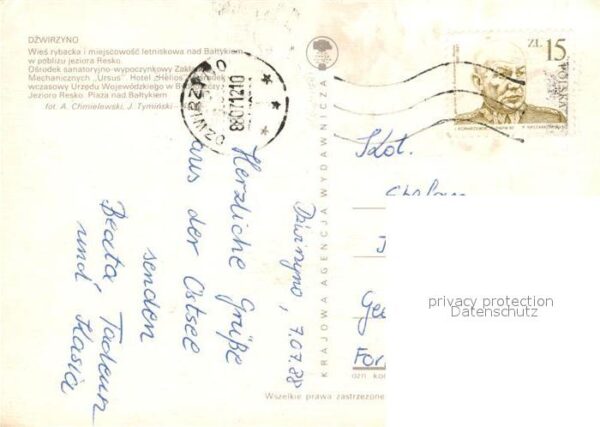 DŹWIRZYNO
Wieś rybacka i miejscowość letniskowa nad Bałtykiem
w pobliżu jeziora Resko.
Ośrodek sanatoryjno-wypoczynkowy
Mechanicznych „Ursus". Hotel „Helios".
wczasowy Urzędu Wojewódzkiego w
Jezioro Resko. Plaża nad Bałtykiem
fot. A. Chmielewski, J. Tymiński
DŹWIRZYNO
KRAJOWA AGENCJA WYDAWNICZA
ZŁ 15
POLSKA
Dźwirzyno, 7.07.88
Herzliche Grüße
aus der Ostsee
senden
Beata, Tadeun
und Kasia
Kot.
Ge
For
Wszelkie prawa zastrzeżone
privacy protection
Datenschutz